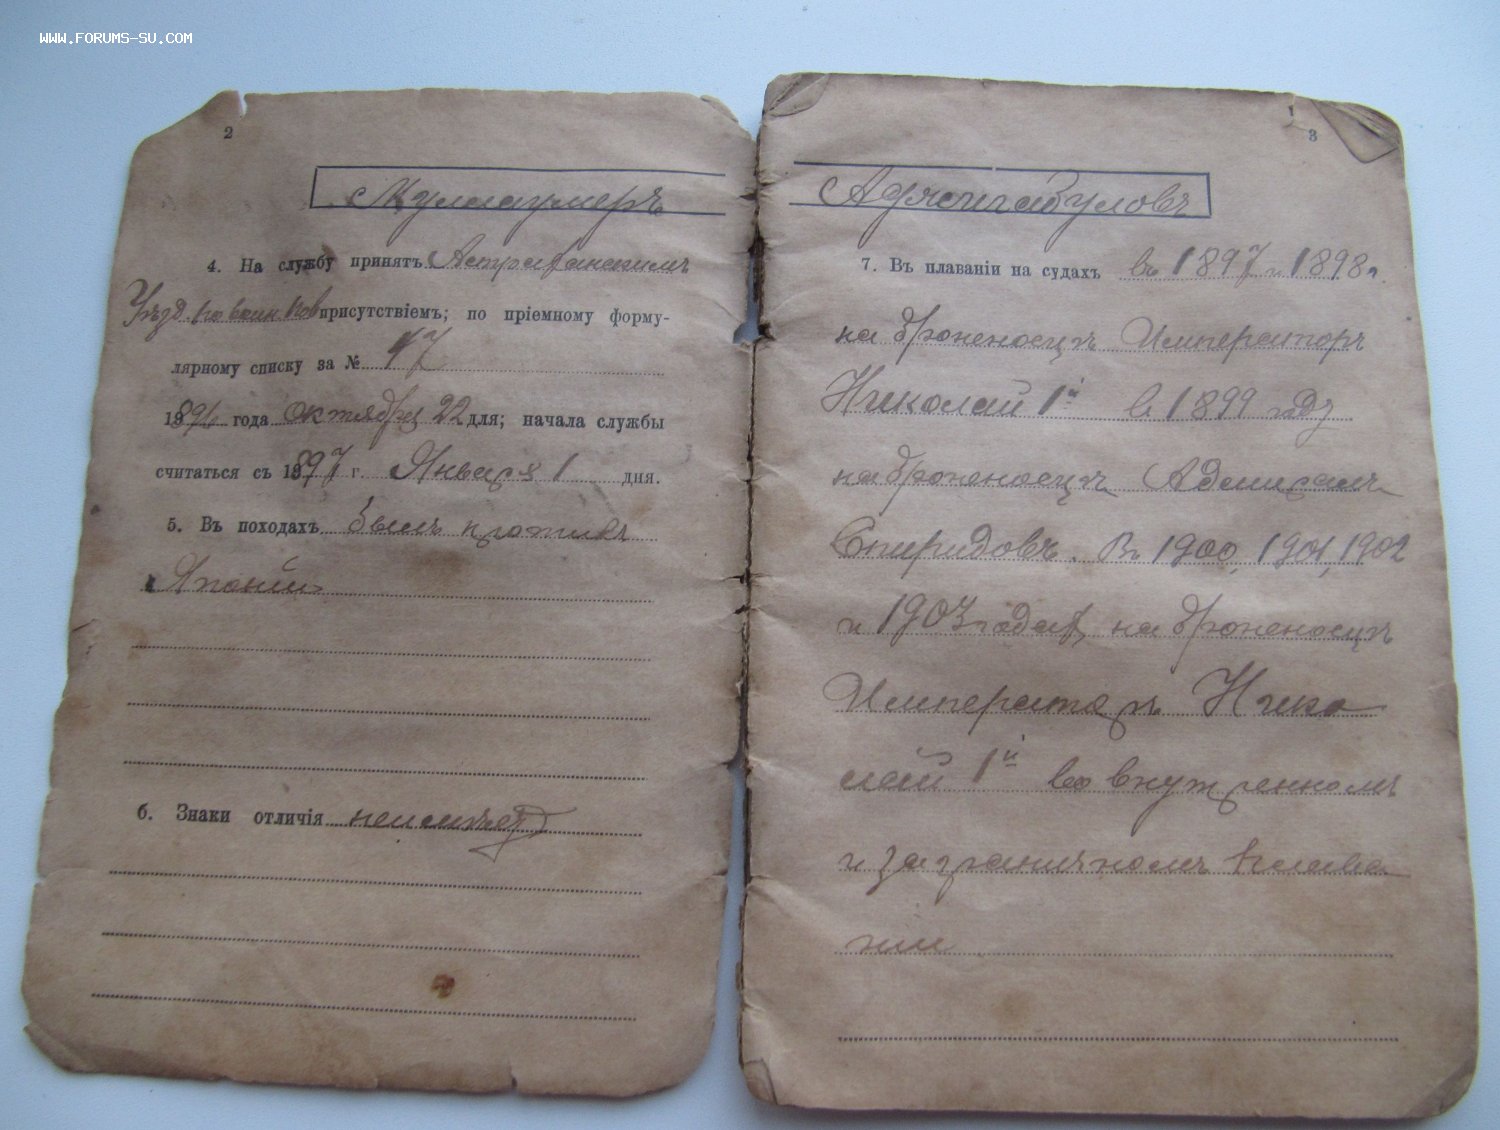 WWW.FORUMS-SU.COM
2
Муллаумеръ
4. На службу принятъ Астраханскимъ
Уѣзд по воин пов присутствіемъ; по пріемному форму-
лярному списку за № 47
1896 года октября 22 для; начала службы
считаться съ 1897 г. Января 1 дня.
5. Въ походахъ былъ противъ
Японіи
6. Знаки отличія неимѣетъ
3
Аджигабуловъ
7. Въ плаваніи на судахъ въ 1897 и 1898 г.
на броненосцѣ Императоръ
Николай 1й в 1899 году
на броненосцѣ Адмиралъ
Спиридовъ. Въ 1900, 1901, 1902
и 1903 годах на броненосцѣ
Императоръ Нико
лай 1й во внутренномъ
и заграничномъ плава
нии